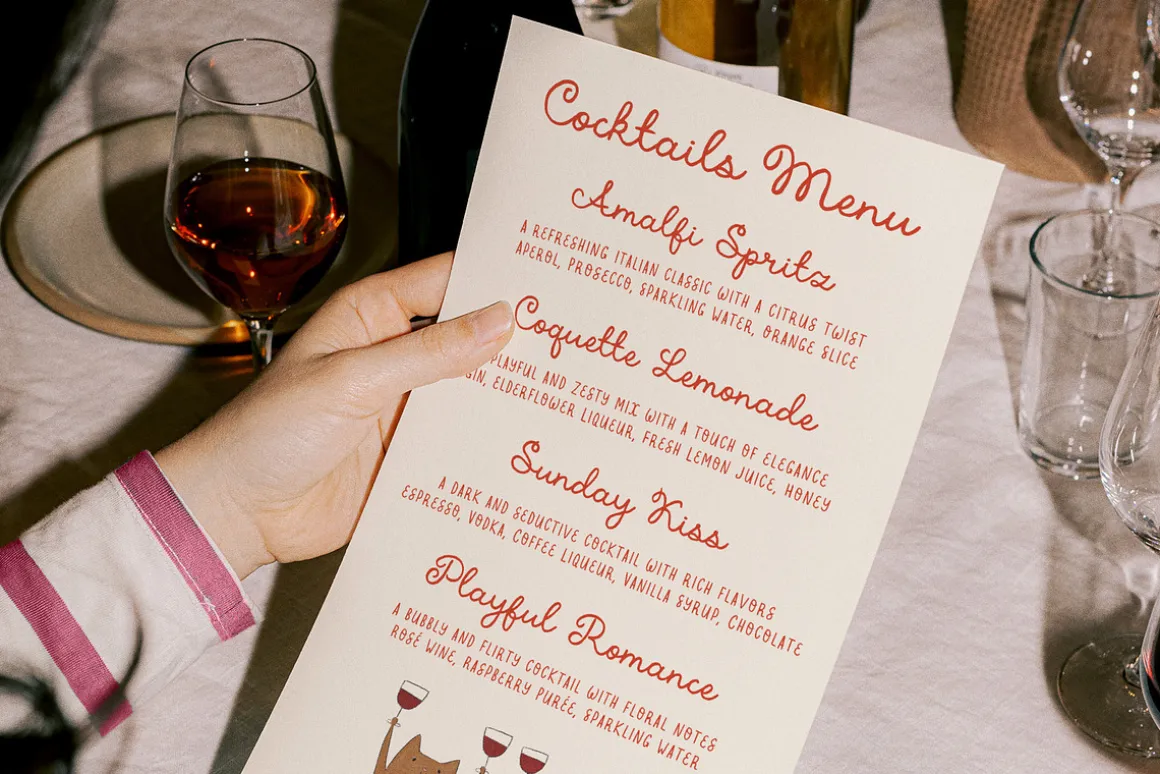 Cocktails Menu
Amalfi Spritz
A REFRESHING ITALIAN CLASSIC WITH A CITRUS TWIST
APEROL, PROSECCO, SPARKLING WATER, ORANGE SLICE
Coquette Lemonade
PLAYFUL AND ZESTY MIX WITH A TOUCH OF ELEGANCE
GIN, ELDERFLOWER LIQUEUR, FRESH LEMON JUICE, HONEY
Sunday Kiss
A DARK AND SEDUCTIVE COCKTAIL WITH RICH FLAVORS
ESPRESSO, VODKA, COFFEE LIQUEUR, VANILLA SYRUP, CHOCOLATE
Playful Romance
A BUBBLY AND FLIRTY COCKTAIL WITH FLORAL NOTES
ROSÉ WINE, RASPBERRY PURÉE, SPARKLING WATER